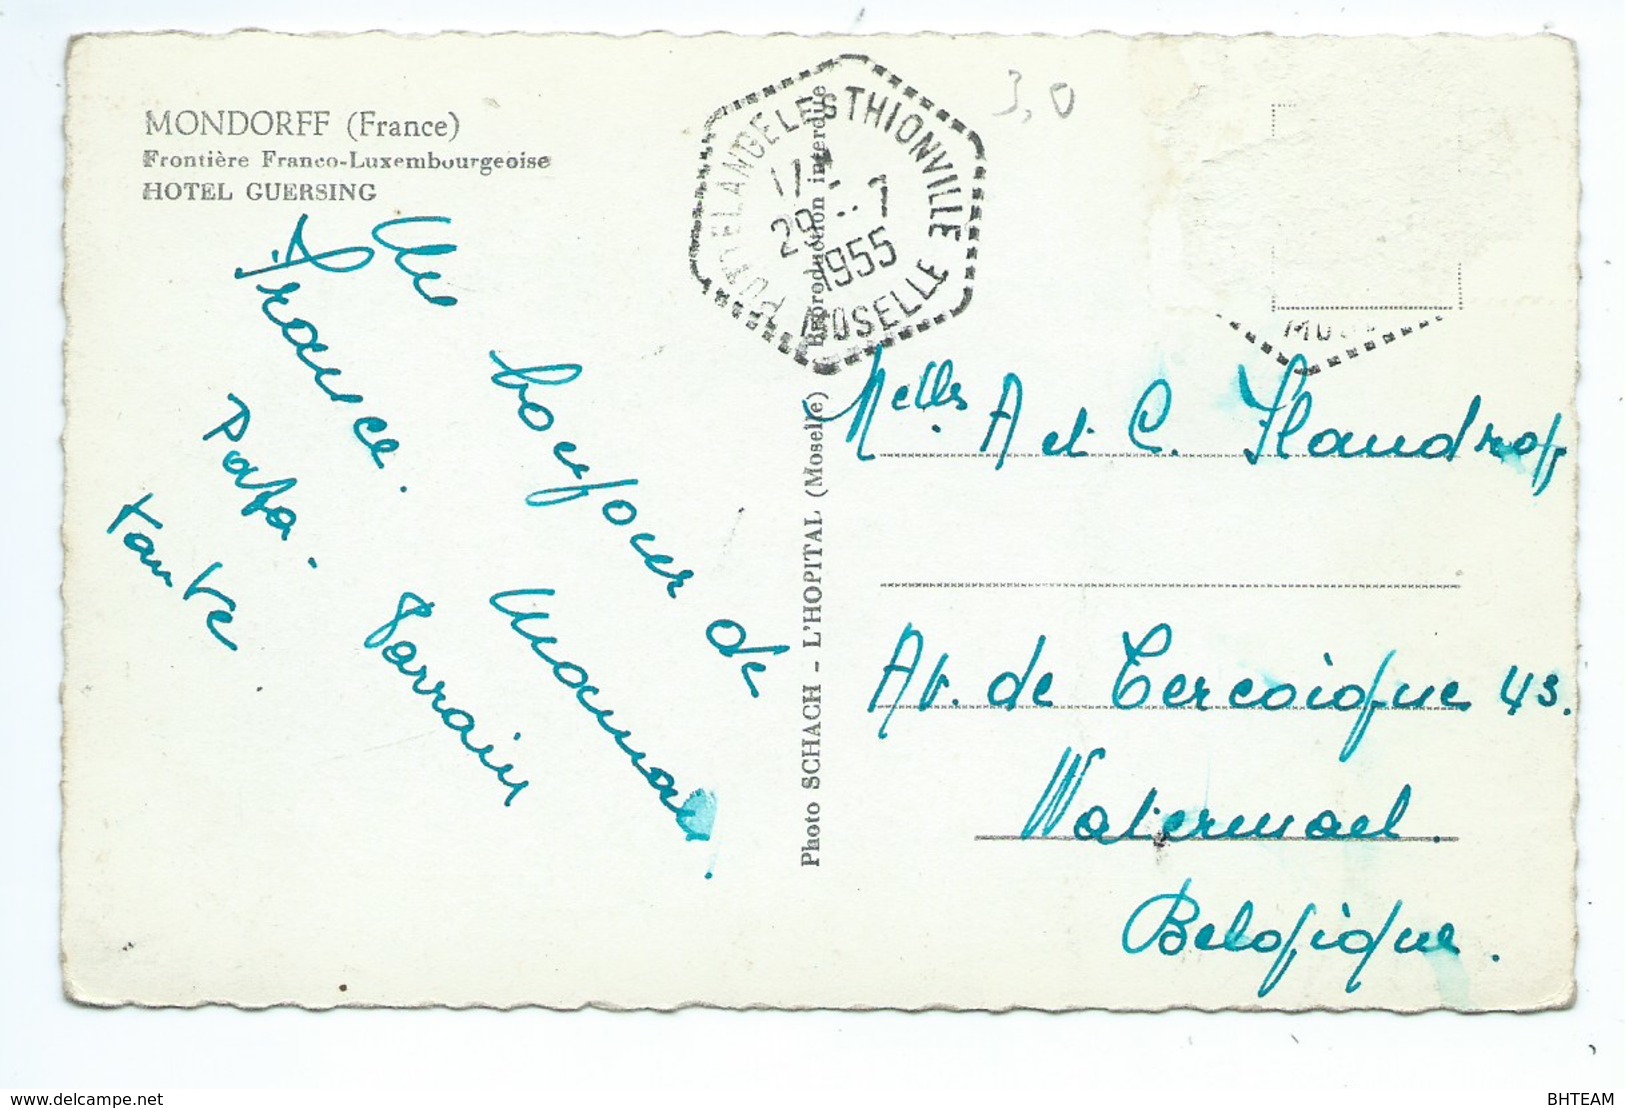 MONDORFF (France)
Frontière Franco-Luxembourgeoise
HOTEL GUERSING
Un bonjour de
France.
Maman.
Parrain
Pata.
tante
PUTTELANGE LES THIONVILLE
17
29 - 7
1955
MOSELLE
3,0
Photo SCHACH - L'HOPITAL (Moselle) Reproduction interdite
Melles A et C. Flandroy
Av. de Tercoigne 43.
Watermael.
Belgique.
www.delcampe.net
BHTEAM